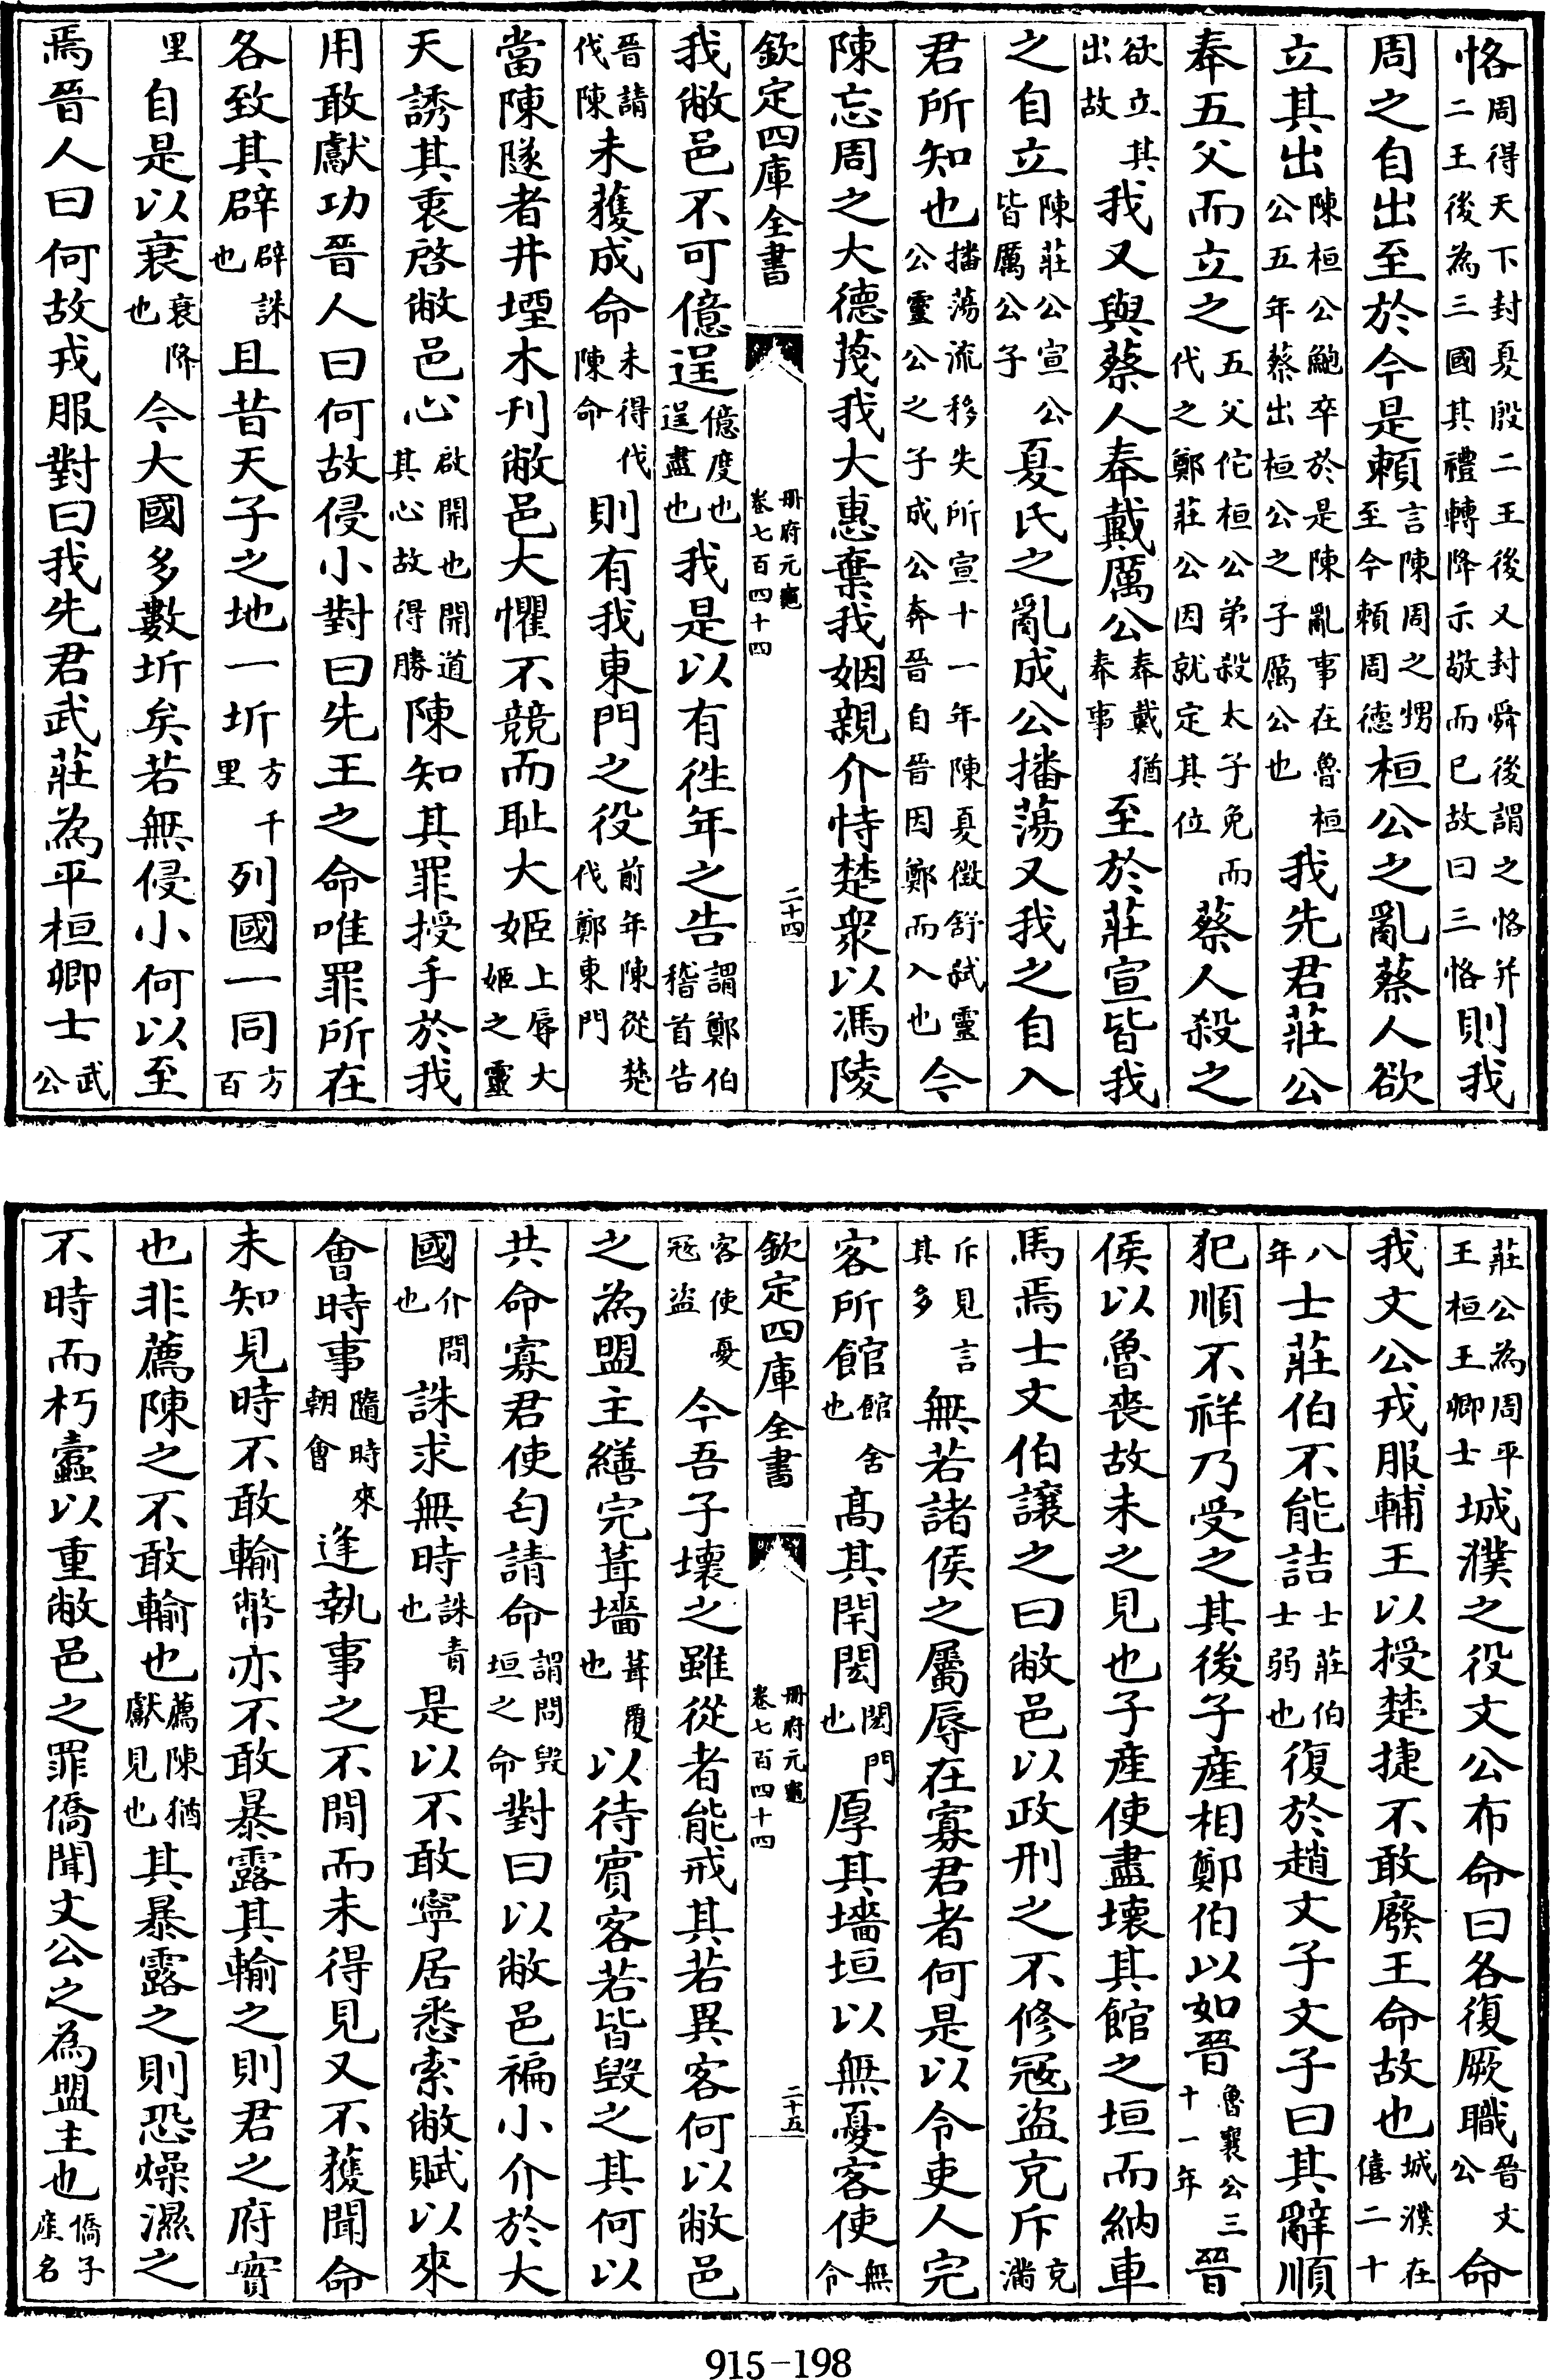 恪周得天下封夏殷二王後又封舜後謂之恪并二王後為三國其禮轉降示敬而已故曰三恪則我
周之自出至於今是賴言陳周之甥至今賴周德桓公之亂蔡人欲
立其出陳桓公鮑卒於是陳亂事在魯桓公五年蔡出桓公之子厲公也我先君莊公
奉五父而立之五父佗桓公弟殺太子免而代之鄭莊公因就定其位蔡人殺之
欲立其出故我又與蔡人奉戴厲公奉戴猶奉事至於莊宣皆我
之自立陳莊公宣公皆厲公子夏氏之亂成公播蕩又我之自入
君所知也播蕩流移失所宣十一年陳夏徵舒弒靈公靈公之子成公奔晉自晉因鄭而入也今
陳忘周之大德蔑我大惠棄我姻親介恃楚衆以馮陵
欽定四庫全書 冊府元龜卷七百四十四 二十四
我敝邑不可億逞億度也逞盡也我是以有徃年之告謂鄭伯稽首告
晉請伐陳未獲成命未得伐陳命則有我東門之役前年陳從楚伐鄭東門
當陳隧者井堙木刋敝邑大懼不競而耻大姬上辱大姬之靈
天誘其衷啓敝邑心啟開也開道其心故得勝陳知其罪授手於我
用敢獻功晉人曰何故侵小對曰先王之命唯罪所在
各致其辟辟誅也且昔天子之地一圻方千里列國一同方百
里自是以衰衰降也今大國多數圻矣若無侵小何以至
焉晉人曰何故戎服對曰我先君武莊為平桓卿士武公
莊公為周平王桓王卿士城濮之役文公布命曰各復厥職晉文公命
我文公戎服輔王以授楚捷不敢廢王命故也城濮在僖二十
八年士莊伯不能詰士莊伯士弱也復於趙文子文子曰其辭順
犯順不祥乃受之其後子產相鄭伯以如晉魯襄公三十一年晉
侯以魯喪故未之見也子產使盡壞其館之垣而納車
馬焉士文伯讓之曰敝邑以政刑之不修冦盜充斥充滿
斥見言其多無若諸侯之屬辱在寡君者何是以令吏人完
客所館館舍也髙其閈閎閎門也厚其墻垣以無憂客使無令
欽定四庫全書 冊府元龜卷七百四十四 二十五
客使憂冦盜今吾子壞之雖從者能戒其若異客何以敝邑
之為盟主繕完葺墻葺覆也以待賓客若皆毀之其何以
共命寡君使匄請命謂問毀垣之命對曰以敝邑褊小介於大
國介間也誅求無時誅責也是以不敢寧居悉索敝賦以來
會時事隨時來朝會逢執事之不閒而未得見又不獲聞命
未知見時不敢輸幣亦不敢暴露其輸之則君之府實
也非薦陳之不敢輸也薦陳猶獻見也其暴露之則恐燥濕之
不時而朽蠹以重敝邑之罪僑聞文公之為盟主也僑子產名
915-198